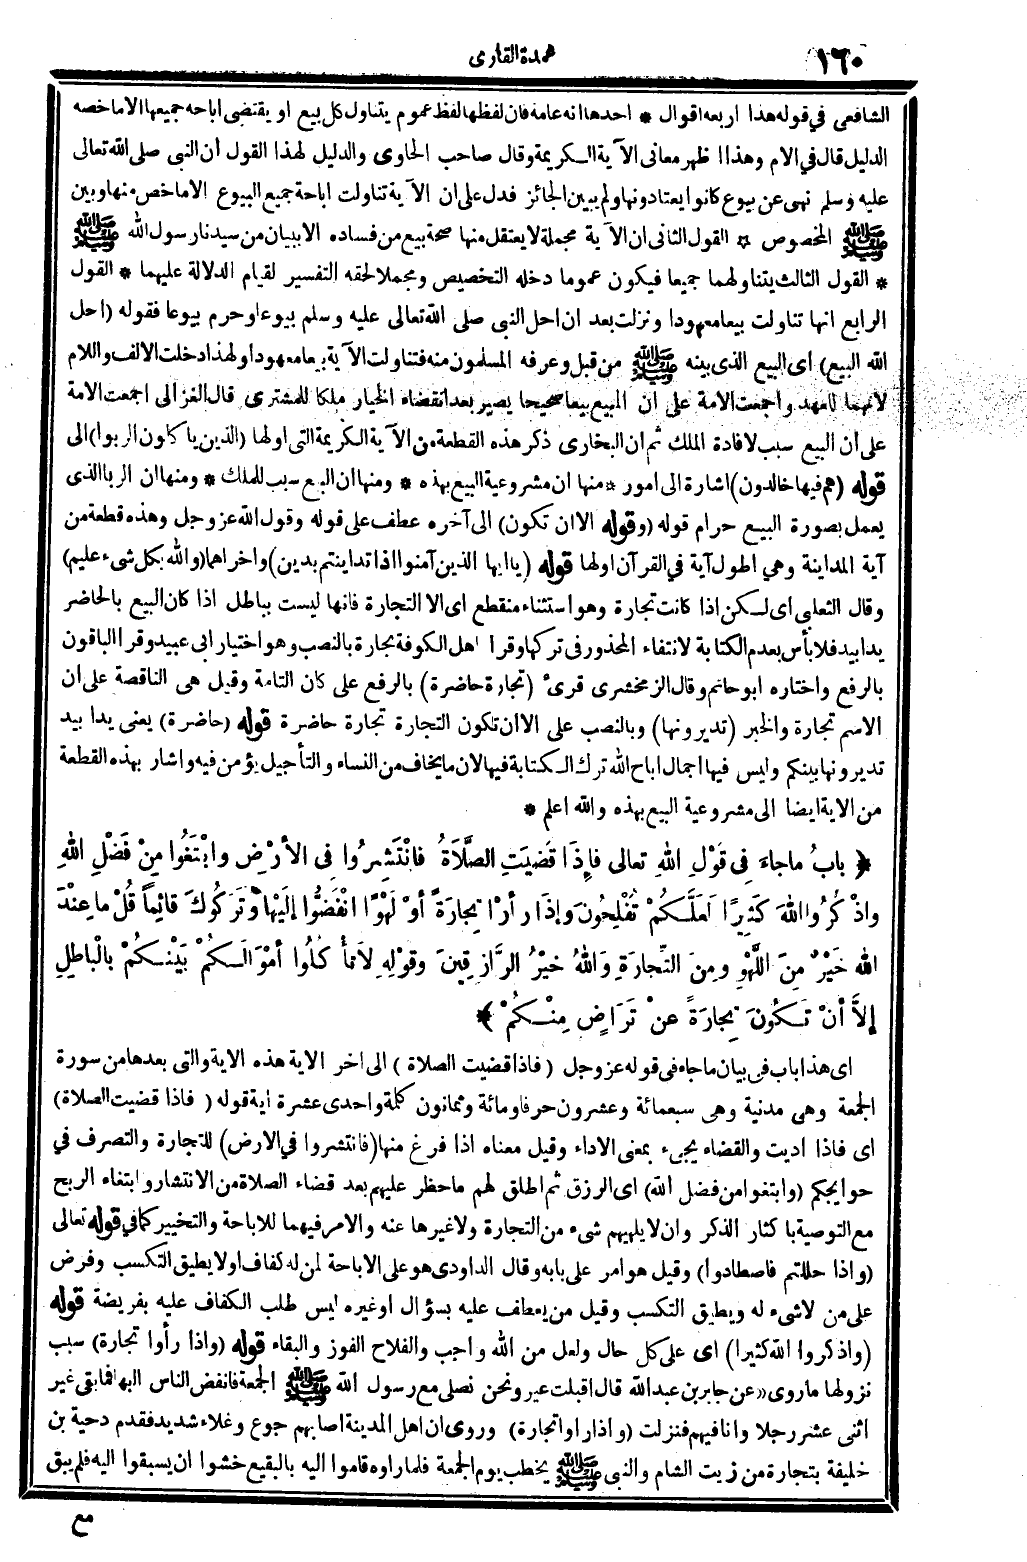 ١٦٠
عمدة القارى
الشافعى في قوله هذا اربعة اقوال * احدها انه عامة فان لفظها لفظ عموم يتناول كل بيع او يقتضى اباحة جميعها الا ما خصه
الدليل قال في الام وهذا اظهر معانى الآية الكريمة وقال صاحب الحاوى والدليل لهذا القول أن النبى صلى الله تعالى
عليه وسلم نهى عن بيوع كانوا يعتادونها ولم يبين الجائز فدل على ان الآية تناولت اباحة جميع البيوع الا ما خص منها وبين
ﷺ المخصوص * القول الثانى ان الآية مجملة لا يعقل منها صحة بيع من فساده الا ببيان من سيدنا رسول الله ﷺ
* القول الثالث يتناولهما جميعا فيكون عموما دخله التخصيص ومجملا لحقه التفسير لقيام الدلالة عليهما * القول
الرابع انها تناولت بيعا معهودا ونزلت بعد ان احل النبى صلى الله تعالى عليه وسلم بيوعا وحرم بيوعا فقوله (احل
الله البيع) اى البيع الذى بينه ﷺ من قبل وعرفه المسلمون منه فتناولت الآية بيعا معهودا ولهذا دخلت الالف واللام
لانهما للعهد واجمعت الامة على ان المبيع بيعا صحيحا يصير بعد انقضاء الخيار ملكا للمشترى قال الغزالى اجمعت الامة
على أن البيع سبب لافادة الملك ثم ان البخارى ذكر هذه القطعة من الآية الكريمة التى اولها (الذين يأكلون الربوا) الى
قوله (هم فيها خالدون) اشارة الى امور * منها ان مشروعية البيع بهذه * ومنها ان البيع سبب للملك * ومنها ان الربا الذى
يعمل بصورة البيع حرام قوله (وقوله الا ان تكون) الى آخره عطف على قوله وقول الله عز وجل وهذه قطعة من
آية المداينة وهي اطول آية في القرآن اولها قوله (يا ايها الذين آمنوا اذا تداينتم بدين) واخراها (والله بكل شىء عليم)
وقال الثعلبى اى لـكن اذا كانت تجارة وهو استثناء منقطع اى الا التجارة فانها ليست بباطل اذا كان البيع بالحاضر
يدا بيد فلا بأس بعدم الكتابة لانتفاء المحذور فى تركها وقرا اهل الكوفة تجارة بالنصب وهو اختيار ابى عبيد وقرا الباقون
بالرفع واختاره ابو حاتم وقال الزمخشرى قرىء (تجارة حاضرة) بالرفع على كان التامة وقيل هى الناقصة على ان
الاسم تجارة والخبر (تديرونها) وبالنصب على الا ان تكون التجارة تجارة حاضرة قوله (حاضرة) يعنى يدا بيد
تديرونها بينكم وليس فيها اجمال اباح الله ترك الكتابة فيها لان ما يخاف من النساء والتأجيل يؤمن فيه واشار بهذه القطعة
من الاية ايضا الى مشروعية البيع بهذه والله اعلم *
﴿ بابُ ما جاءَ فِى قَوْلِ اللهِ تعالى فإِذَا قضيَتِ الصَّلاَةُ فانْتَشِرُوا فِى الأرْضِ وابْتَغُوا مِنْ فَضْلِ اللهِ
واذْكُرُوا اللهَ كَثِيرًا لَعَلَّـكُمْ تُفْلِحُونَ وإذَا رأوْا تِجارَةً أوْ لَهْوًا انْفَضُّوا إلَيْها وتَرَكُوكَ قائِماً قُلْ ما عِنْدَ
الله خَيْرٌ مِنَ اللَّهْوِ ومِنَ التِّجارَةِ وَاللهُ خَيْرُ الرَّازِقِينَ وقوْلِهِ لاَ تَأْ كُلُوا أمْوَالَـكُمْ بَيْنَـكُمْ بالْباطِلِ
إلاَّ أنْ تَـكُونَ تِجارَةً عنْ تَرَاضٍ مِنْـكُمْ ﴾ *
اى هذا باب فى بيان ما جاء فى قوله عز وجل (فاذا قضيت الصلاة) الى اخر الاية هذه الاية والتى بعدها من سورة
الجمعة وهى مدنية وهى سبعمائة وعشرون حرفا ومائة وثمانون كلمة واحدى عشرة اية قوله (فاذا قضيت الصلاة)
اى فاذا اديت والقضاء يجىء بمعنى الاداء وقيل معناه اذا فرغ منها (فانتشروا في الارض) للتجارة والتصرف في
حوايجكم (وابتغوا من فضل الله) اى الرزق ثم اطلق لهم ما حظر عليهم بعد قضاء الصلاة من الانتشار وابتغاء الربح
مع التوصية باكثار الذكر وان لا يلهيهم شىء من التجارة ولا غيرها عنه والامر فيهما للاباحة والتخيير كما في قوله تعالى
(واذا حللتم فاصطادوا) وقيل هو امر على بابه وقال الداودى هو على الاباحة لمن له كفاف او لا يطيق التكسب وفرض
على من لا شىء له ويطيق التكسب وقيل من يعطف عليه بسؤال او غيره ليس طلب الكفاف عليه بفريضة قوله
(واذكروا الله كثيرا) اى على كل حال ولعل من الله واجب والفلاح الفوز والبقاء قوله (واذا رأوا تجارة) سبب
نزولها ما روى «عن جابر بن عبد الله قال اقبلت عير ونحن نصلى مع رسول الله ﷺ الجمعة فانفض الناس اليها فما بقى غير
اثنى عشر رجلا وانا فيهم فنزلت (واذا راوا تجارة) وروى ان اهل المدينة اصابهم جوع وغلاء شديد فقدم دحية بن
خليفة بتجارة من زيت الشام والنبى ﷺ يخطب يوم الجمعة فلما راوه قاموا اليه بالبقيع خشوا ان يسبقوا اليه فلم يبق
مع